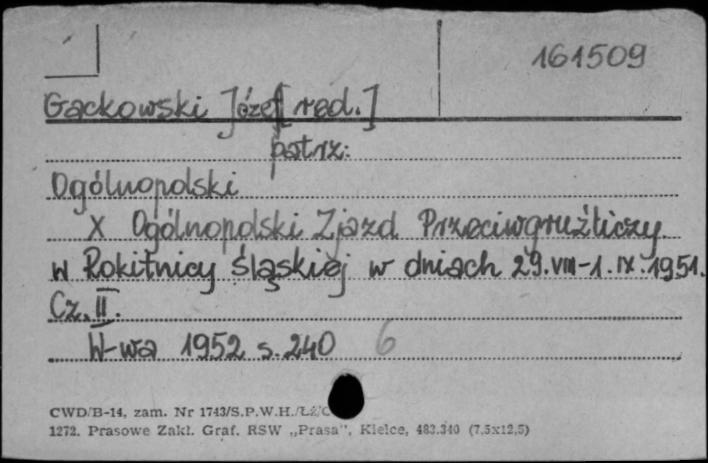 161509
Gackowski Józef [red.]
patrz:
Ogólnopolski
X Ogólnopolski Zjazd Przeciwgruźliczy
w Rokitnicy śląskiej w dniach 29.VIII-1.IX.1951.
Cz. II.
W-wa 1952 s. 240 6
CWD/B-14, zam. Nr 1743/S.P.W.H.
1272. Prasowe Zakł. Graf. RSW „Prasa", Kielce, 483.340 (7,5x12,5)